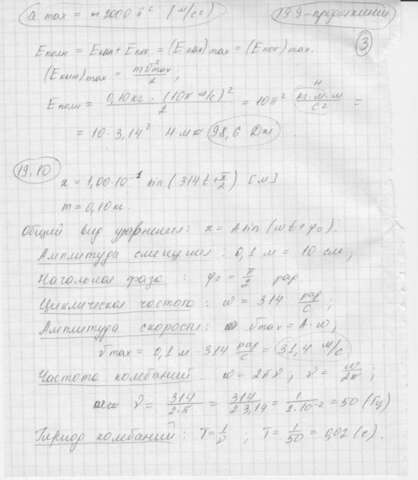 a max = -2000π² (м/с²) 19.9-продолжение
3
Eполн = Eкин + Eпот = (Eкин)max = (Eпот)max.
(Eкин)max = mv²max / 2,
Eполн = 0,10кг · (10π м/с)² / 2 = 10π² кг·м·м / с² =
= 10·3,14² Н·м = 98,6 Дж
19.10
x = 1,00·10⁻¹ sin (314t + π/2) [м]
m = 0,10кг.
Общий вид уравнения: x = A sin (ωt + φ₀).
Амплитуда смещения: 0,1 м = 10 см,
Начальная фаза: φ₀ = π/2 рад
Циклическая частота: ω = 314 рад/с;
Амплитуда скорости: vmax = A·ω;
vmax = 0,1 м · 314 рад/с = 31,4 м/с
Частота колебаний ω = 2πν, ν = ω/2π;
ν = 314/2·π = 314/2·3,14 = 1/2·10⁻² = 50 (Гц)
Период колебаний: T = 1/ν, T = 1/50 = 0,02 (с).